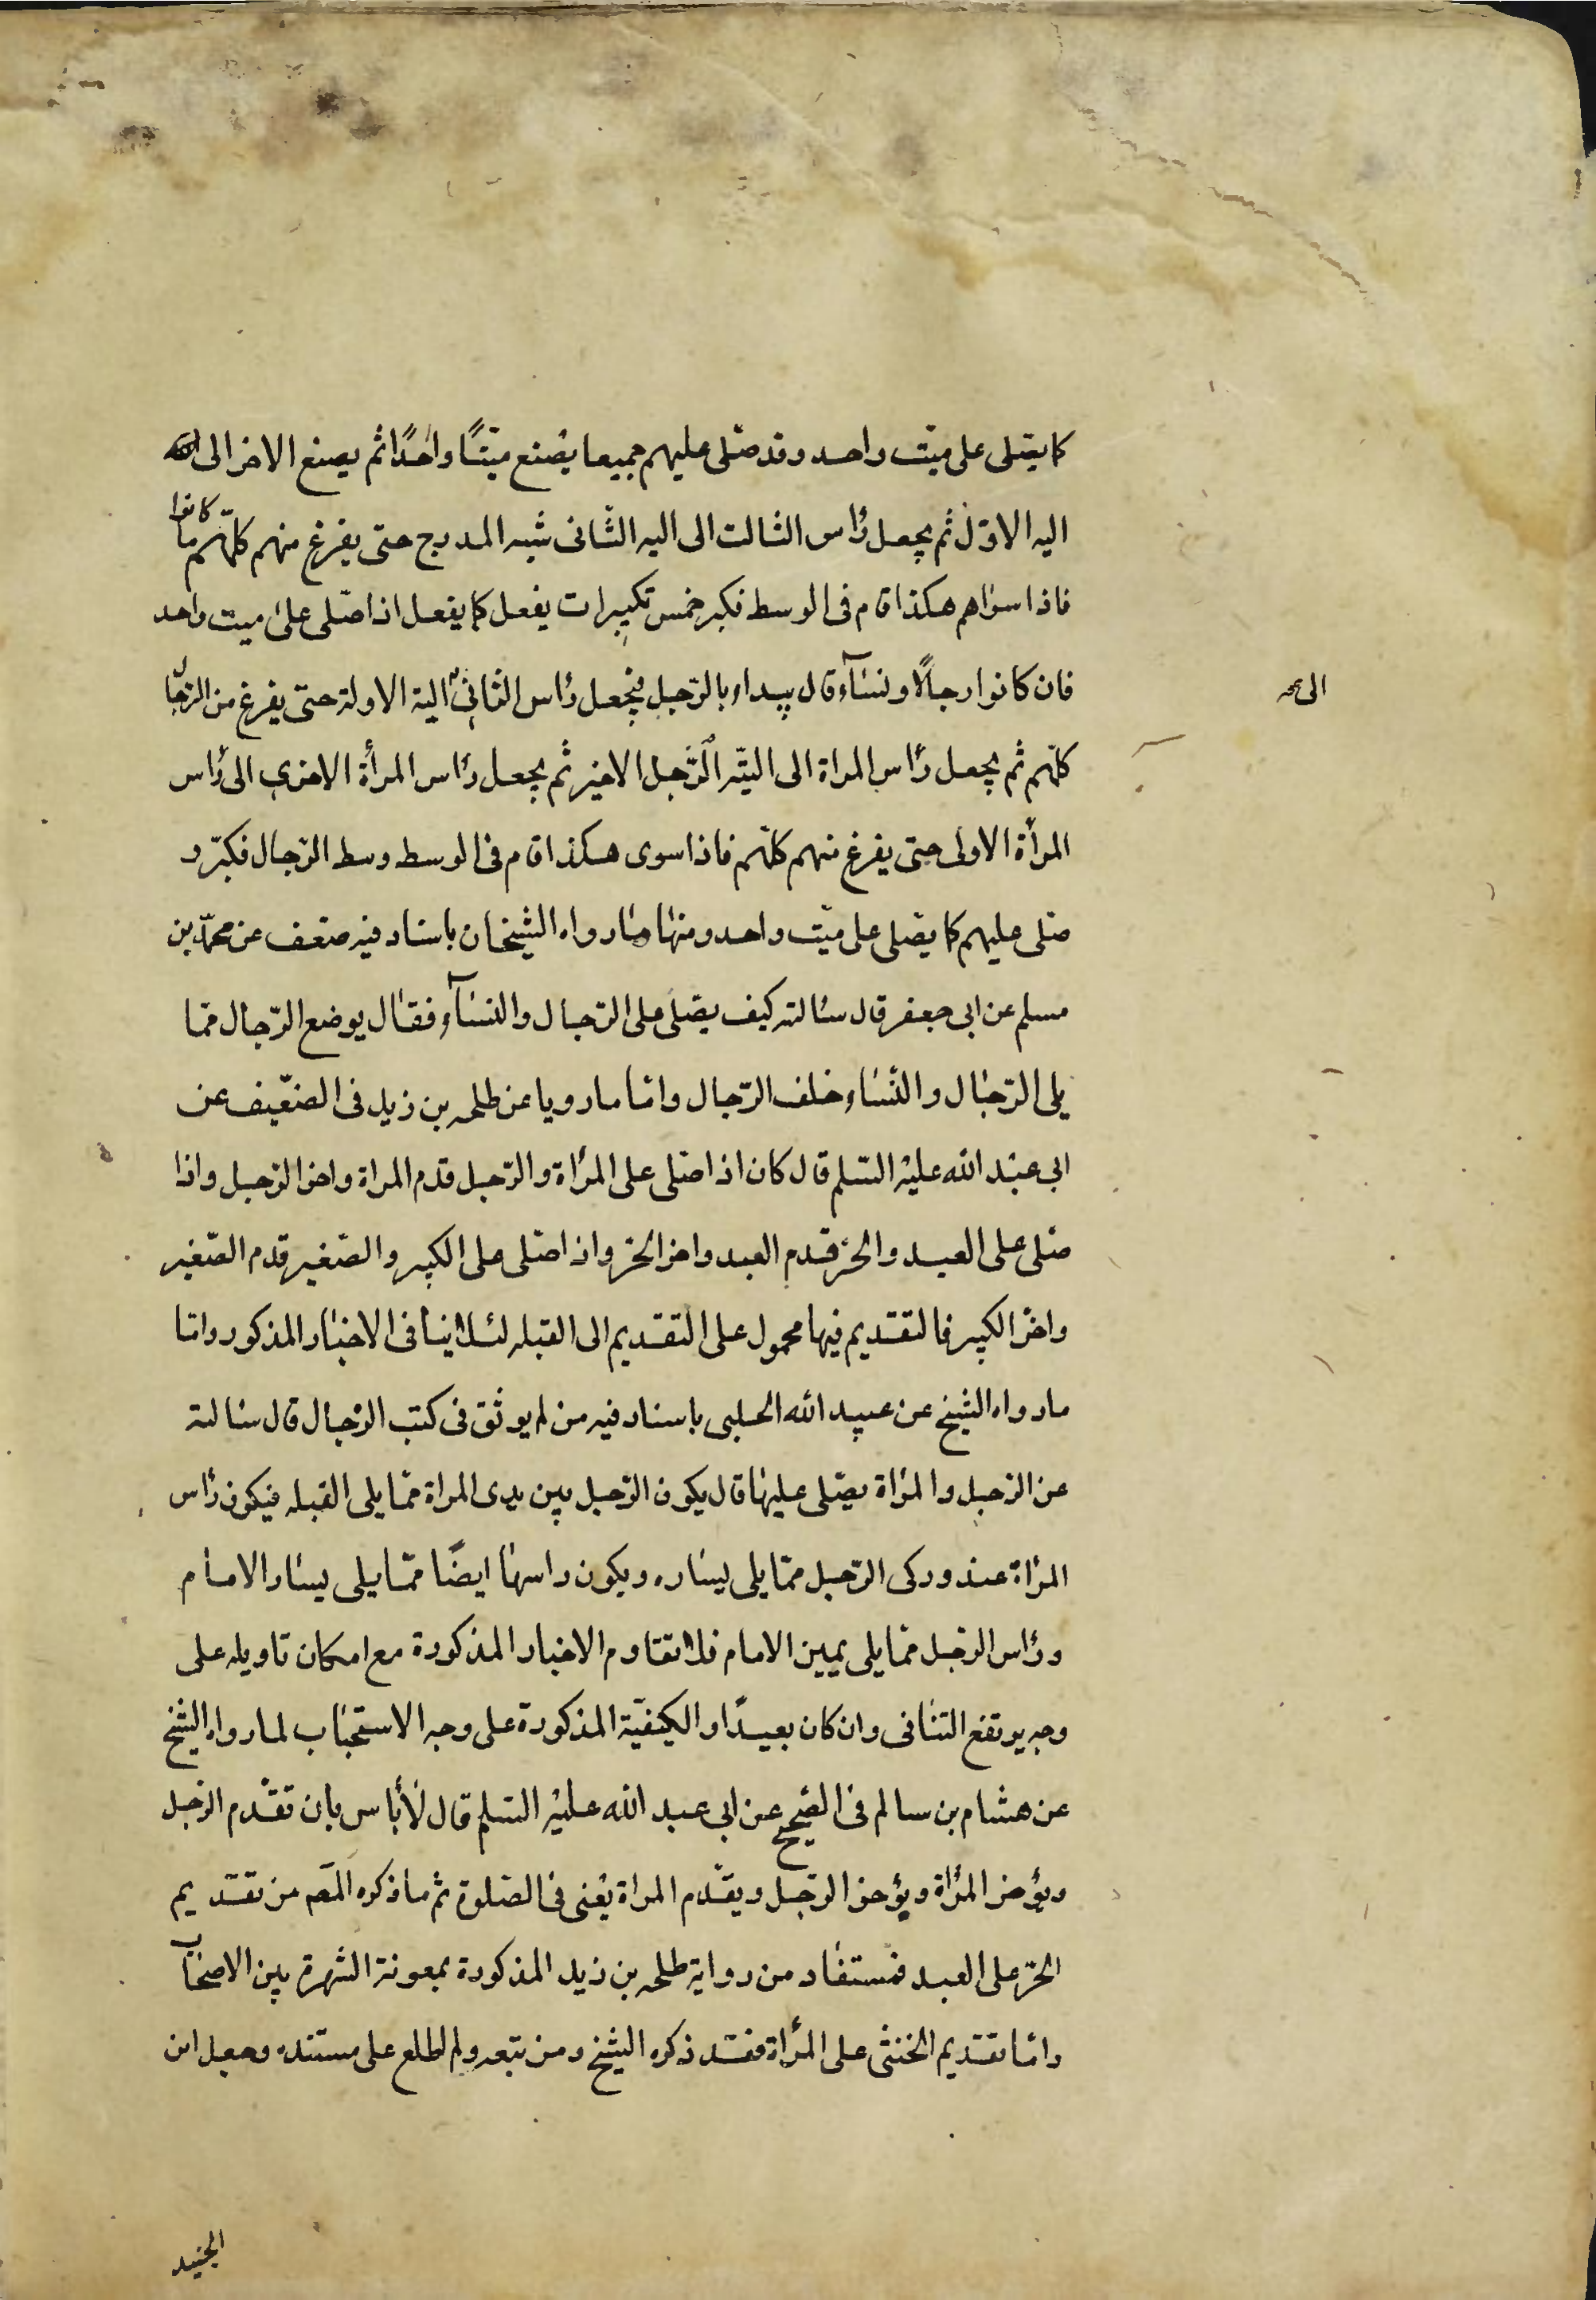 كما يصلى على ميّت واحد وقد صلى عليهم جميعا يضع ميّتًا واحدًا ثم يضع الاخر الى
اليه الاوّل ثم يجعل رأس الثالث الى اليه الثانى شبه المدرج حتى يفرغ منهم كلّهم ما كانوا
فاذا سواهم هكذا قام فى الوسط فكبر خمس تكبيرات يفعل كما يفعل اذا صلى على ميت واحد
فان كانوا رجالًا ونسآء قال يبداء بالرّجل فيجعل رأس الثانى الية الاولة حتى يفرغ من الرّجال
الى صح
كلّهم ثم يجعل رأس المراة الى اليتّه الرّجل الاخير ثم يجعل رأس المرأة الاخرى الى رأس
المرأة الاولى حتى يفرغ منهم كلّهم فاذا سوى هكذا قام فى الوسط وسط الرّجال فكبّر و
صلى عليهم كما يصلى على ميّت واحد ومنها ما رواه الشيخان باسناد فيه ضعف عن محمّد بن
مسلم عن ابى جعفر قال سالته كيف يصلى على الرّجال والنسآء فقال يوضع الرّجال ممّا
يلى الرّجال والنّساء خلف الرّجال وامّا ما رويا عن طلحه بن زيد فى الضّعيف عن
ابى عبد الله عليه السّلم قال كان اذا صلى على المرأة والرّجل قدم المراة واخر الرّجل واذا
صلى على العبد والحرّ قدم العبد واخر الحرّ واذا صلى على الكبير والصّغير قدم الصّغير
واخّر الكبير فالتقديم فيها محمول على التقديم الى القبله لئلا ينافى الاخبار المذكور وامّا
ما رواه الشيخ عن عبيد الله الحلبى باسناد فيه من لم يوثق فى كتب الرّجال قال سالته
عن الرّجل والمرأة يصلى عليها قال يكون الرّجل بين يدى المراة ممّا يلى القبله فيكون رأس
المرأة عند وركى الرّجل ممّا يلى يساره ويكون راسها ايضًا ممّا يلى يسار الامام
ورأس الرّجل ممّا يلى يمين الامام فلا تقاوم الاخبار المذكورة مع امكان تاويله على
وجه يرتفع التنافى وان كان بعيدًا والكيفيّة المذكورة على وجه الاستحباب لما رواه الشيخ
عن هشام بن سالم فى الصّحيح عن ابى عبد الله عليه السّلم قال لا بأس بان تقدّم الرّجل
ويؤخر المرأة ويؤخر الرّجل ويقدّم المراة يعنى فى الصّلوة ثم ما ذكره المصّ من تقديم
الحرّ على العبد فمستفاد من رواية طلحه بن زيد المذكورة بمعونة الشهرة بين الاصحاب
وامّا تقديم الخنثى على المرأة فقد ذكره الشيخ ومن تبعه ولم اطلع على مستنده وجعل ابن
الجنيد